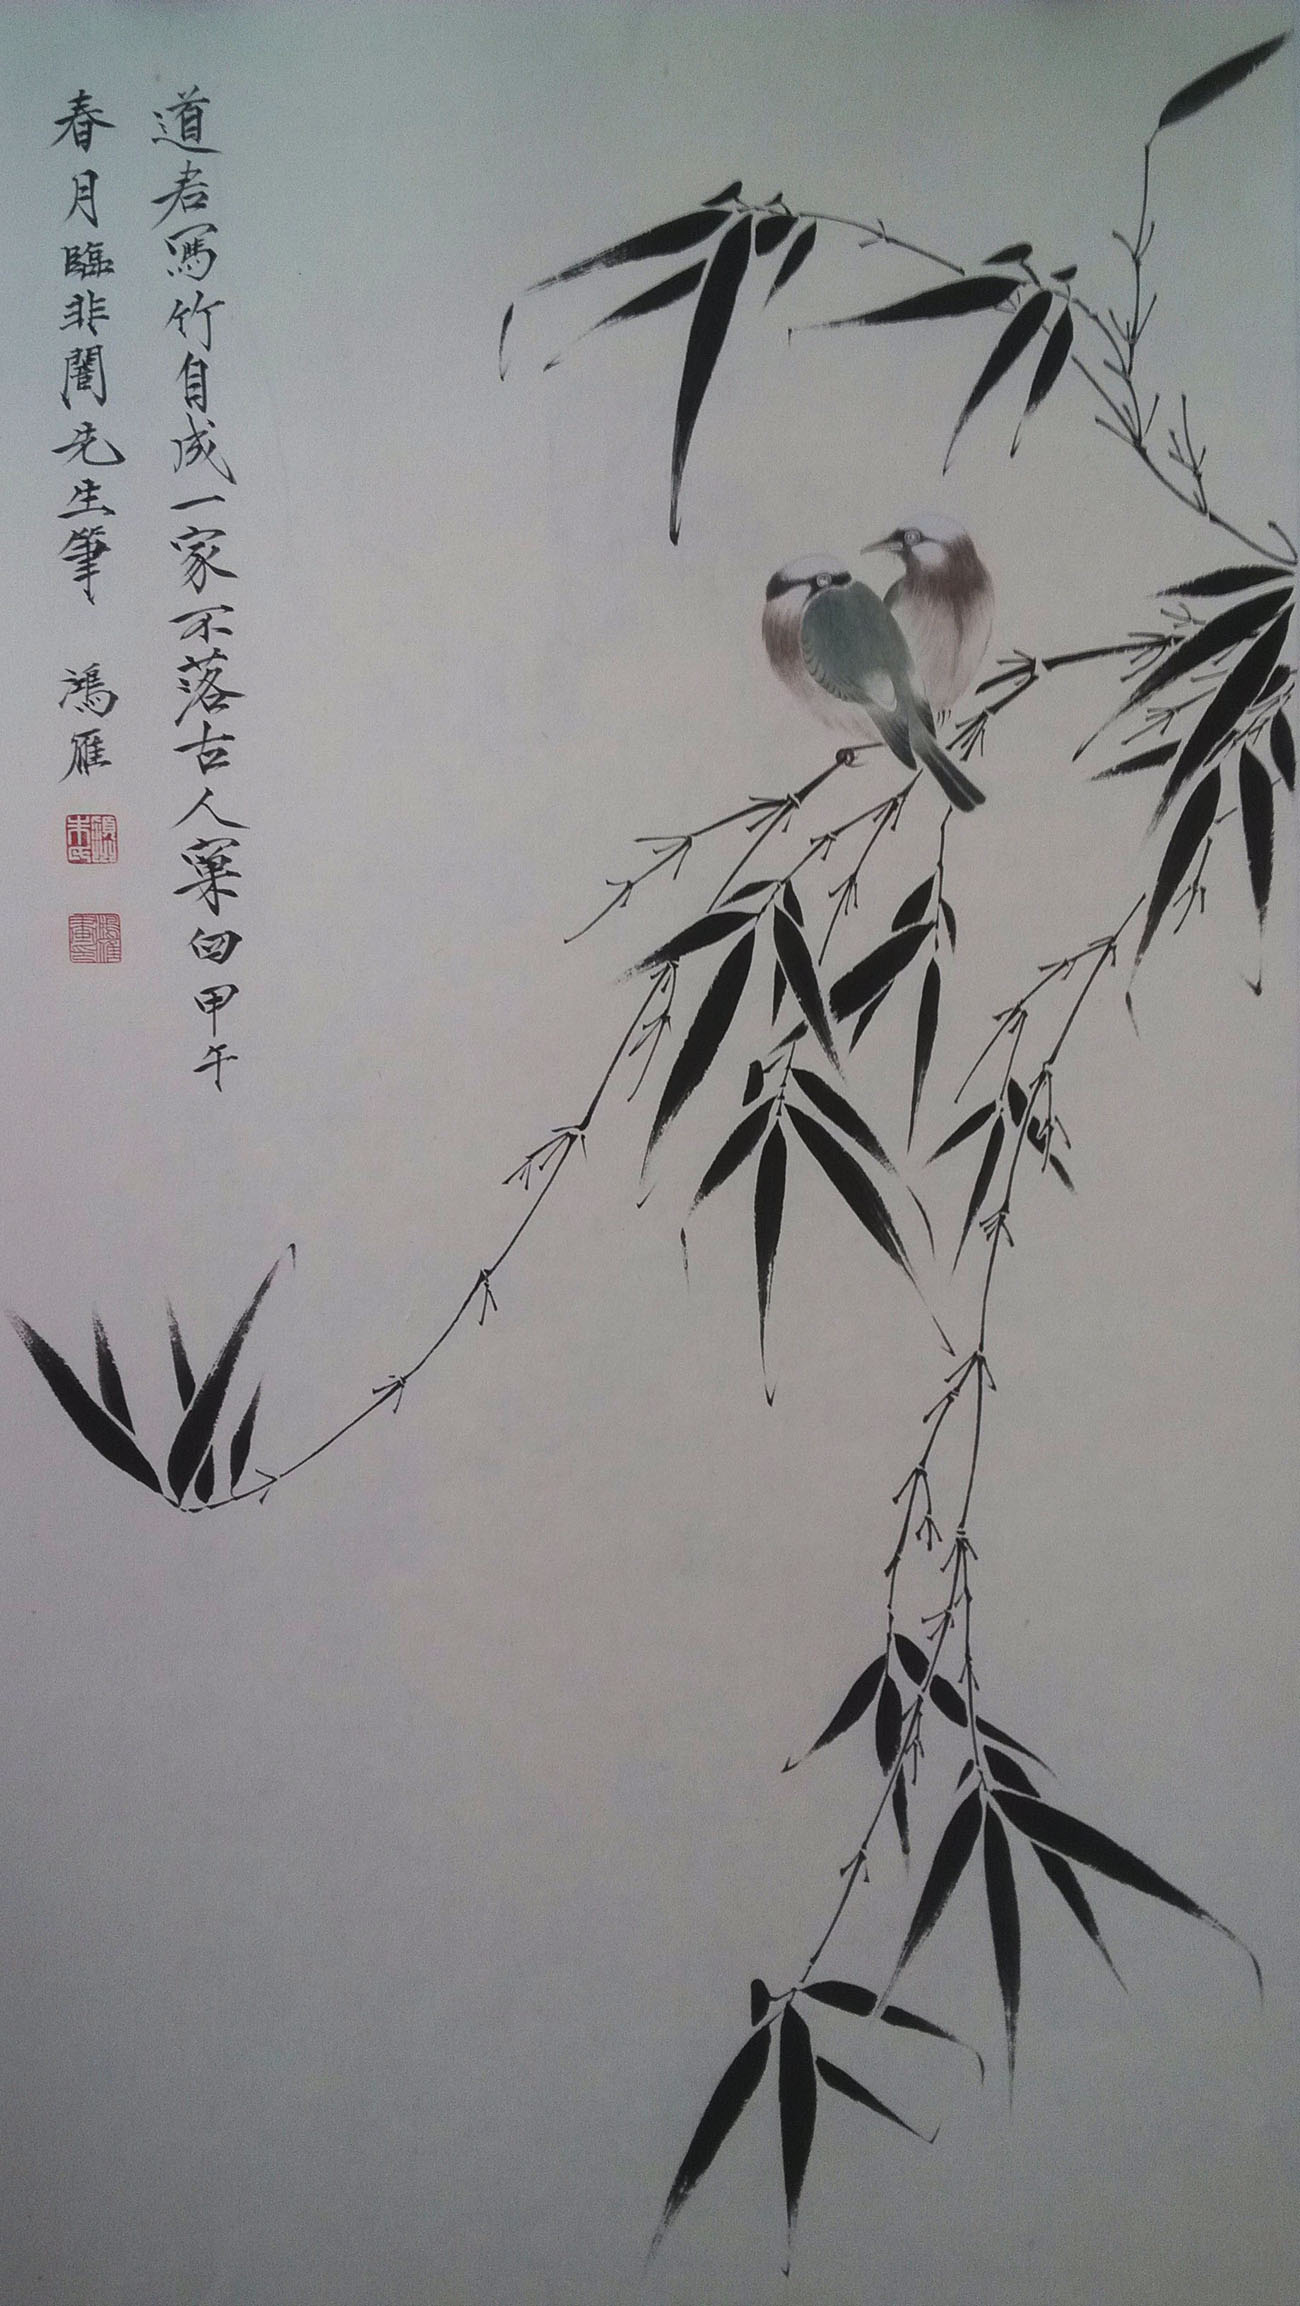 道君寫竹自成一家不落古人窠臼甲午
春月臨非闇先生筆 鴻雁